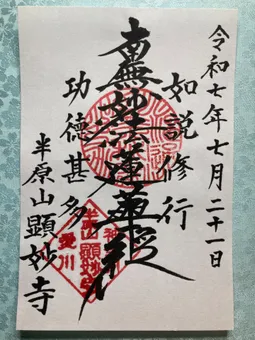 令和七年七月二十一日
如説修行
南無妙法蓮華経
功徳甚多
半原山 顕妙寺
神奈川
半原山 顕妙寺
愛川